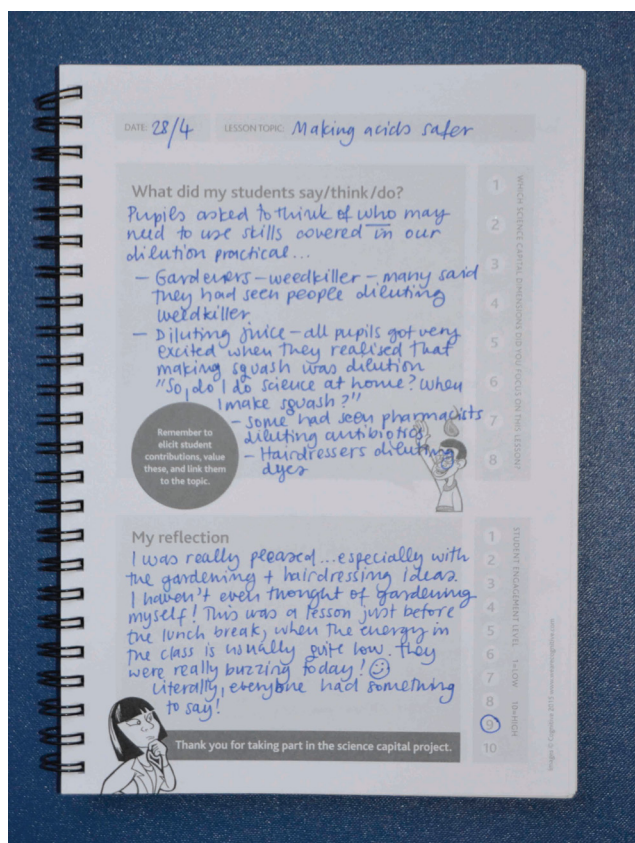 DATE: 28/4 LESSON TOPIC: Making acids safer
What did my students say/think/do?
Pupils asked to think of who may
need to use skills covered in our
dilution practical...
- Gardeners - weedkiller - many said
they had seen people diluting
weedkiller
- Diluting juice - all pupils got very
excited when they realised that
making squash was dilution
"So, do I do science at home? When
I make squash?"
- Some had seen pharmacists
diluting antibiotics
- Hairdressers diluting
dyes
Remember to
elicit student
contributions, value
these, and link them
to the topic.
WHICH SCIENCE CAPITAL DIMENSIONS DID YOU FOCUS ON THIS LESSON?
1
2
3
4
5
6
7
8
My reflection
I was really pleased... especially with
the gardening + hairdressing ideas.
I haven't even thought of gardening
myself! This was a lesson just before
the lunch break, when the energy in
the class is usually quite low. They
were really buzzing today! ☺
Literally, everyone had something
to say!
STUDENT ENGAGEMENT LEVEL 1=LOW 10=HIGH
1
2
3
4
5
6
7
8
9
10
Thank you for taking part in the science capital project.